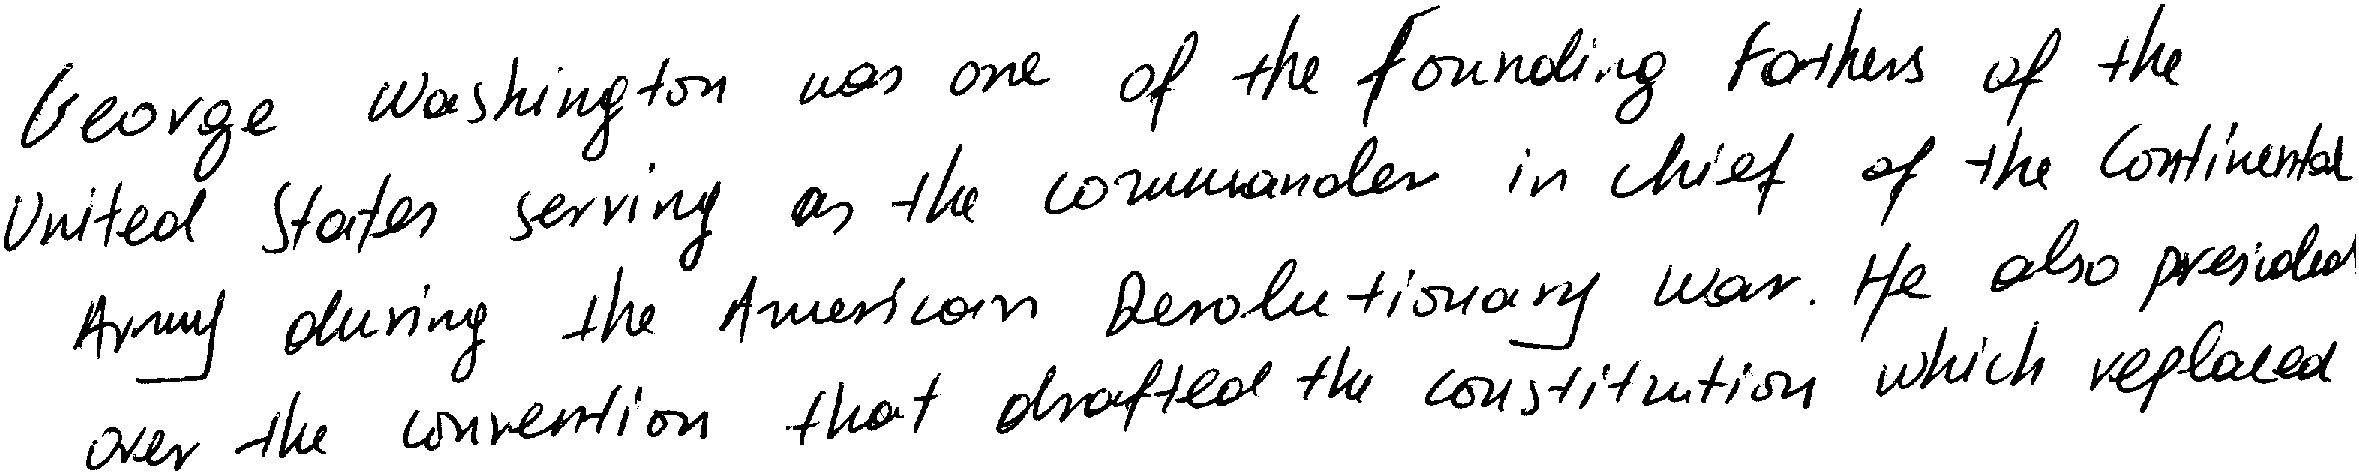 George Washington was one of the Founding Fathers of the
United States serving as the commander in chief of the Continental
Army during the American Revolutionary War. He also presided
over the convention that drafted the constitution which replaced